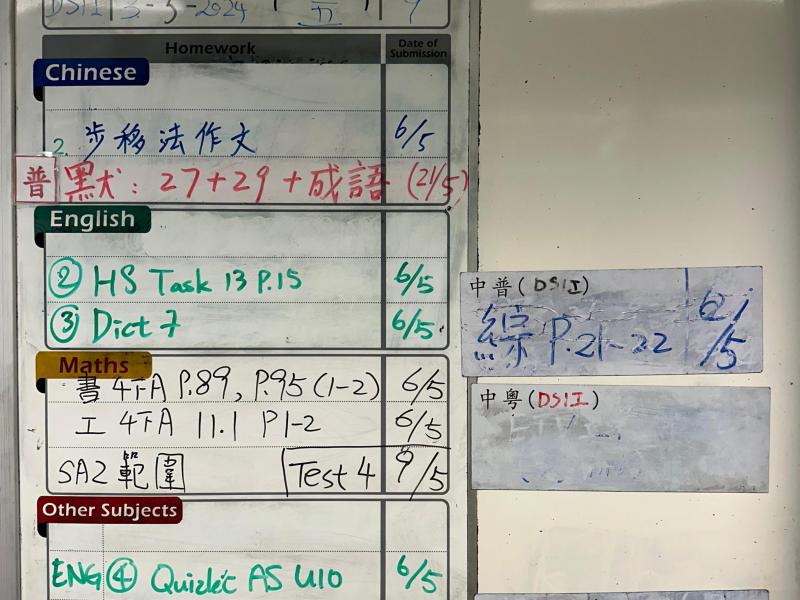 DSII 3-5-2024 五 9
Homework Date of Submission
Chinese
2. 步移法作文 6/5
普 默: 27+29+成語 (21/5)
English
② HS Task 13 P.15 6/5
③ Dict 7 6/5
Maths
書 4下A P.89, P.95 (1-2) 6/5
工 4下A 11.1 P1-2 6/5
SA2 範圍 Test 4 9/5
Other Subjects
ENG ④ Quizlet AS U10 6/5
中普(DSII)
綜 P.21-22 6/5
中粵(DSII)